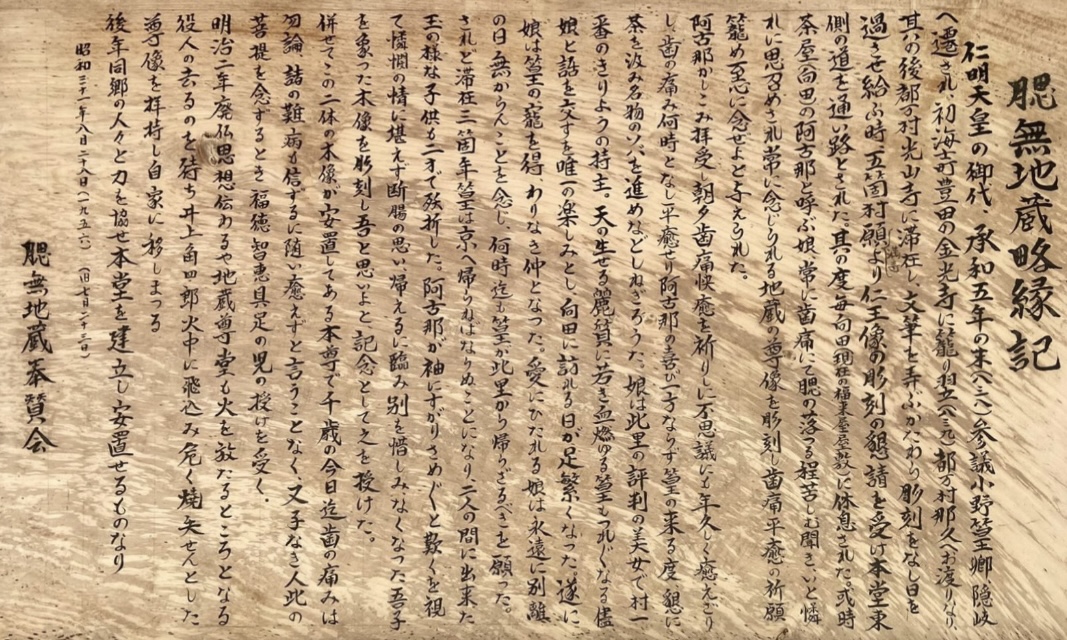 腮無地蔵略縁記
仁明天皇の御代、承和五年の末(八三八)参議小野篁王卿隠岐
へ遷され、初海士町豊田の金光寺に籠り翌五(八三九)都万村那久へお渡りなり、
其の後都万村光山寺に滞在し、文筆を弄ぶかたわら彫刻をなし日を
過させ給ふ時、五箇村願より仁王像の彫刻の懇請を受け本堂東
側の道を通い路とされた、其の度毎向田(現在の福来屋屋敷)に休息された或時
茶屋向田の阿古那と呼ぶ娘、常に歯痛にて腮の落つる程苦しむ聞きいと憐
れに思召めされ常に念じられる地蔵の尊像を彫刻し歯痛平癒の祈願
籠め一心に念ぜよと与えられた。
阿古那かしこみ拝受し朝夕歯痛快癒を祈りしに不思議にも年久しく癒えざり
し歯の痛み何時となし平癒せり阿古那の喜び一方ならず篁の来る度懇に
茶を汲み名物のソバを進めなどしねぎろうた。娘は此里の評判の美女で村一
番のきりようの持主。天の生せる麗質に若き血燃ゆる篁もつれづれなる儘
娘と話を交すを唯一の楽しみとし向田に訪れる日が足繁くなった遂に
娘は篁王の寵を得わりなき仲となつた。愛にひたれる娘は永遠に別離
の日無からんことを念じ、何時迄も篁が此里から帰らざるべきを願つた。
されど滞在三箇年篁王は京へ帰らねばならぬことになり、二人の間に出来た
玉の様な子供も二才で殀折した。阿古那が袖にすがりさめざめと歎くを視
て憐憫の情に堪えず断腸の思い帰えるに臨み別を惜しみなくなつた吾子
を象つた木像を彫刻し吾と思いよと記念として之を授けた。
併せてこの二体の木像が安置してある本尊で千歳の今日迄歯の痛みは
勿論諸の難病も信ずるに随い癒えずと言うことなく、又子なき人此の
菩提を念ずるとき福徳智恵具足の児の授けを受く。
明治二年廃仏思想伝わるや地蔵尊堂も火を放たるところとなる
役人の去るのを待ち井上角四郎火中に飛込み危く焼矢せんとした
尊像を拝持し自家に移しまつる
後年同郷の人々と力を協せ本堂を建立し安置せるものなり
昭和三十一年八月二十八日(一九五六)(旧七月二十三日)
腮無地蔵奉賛会